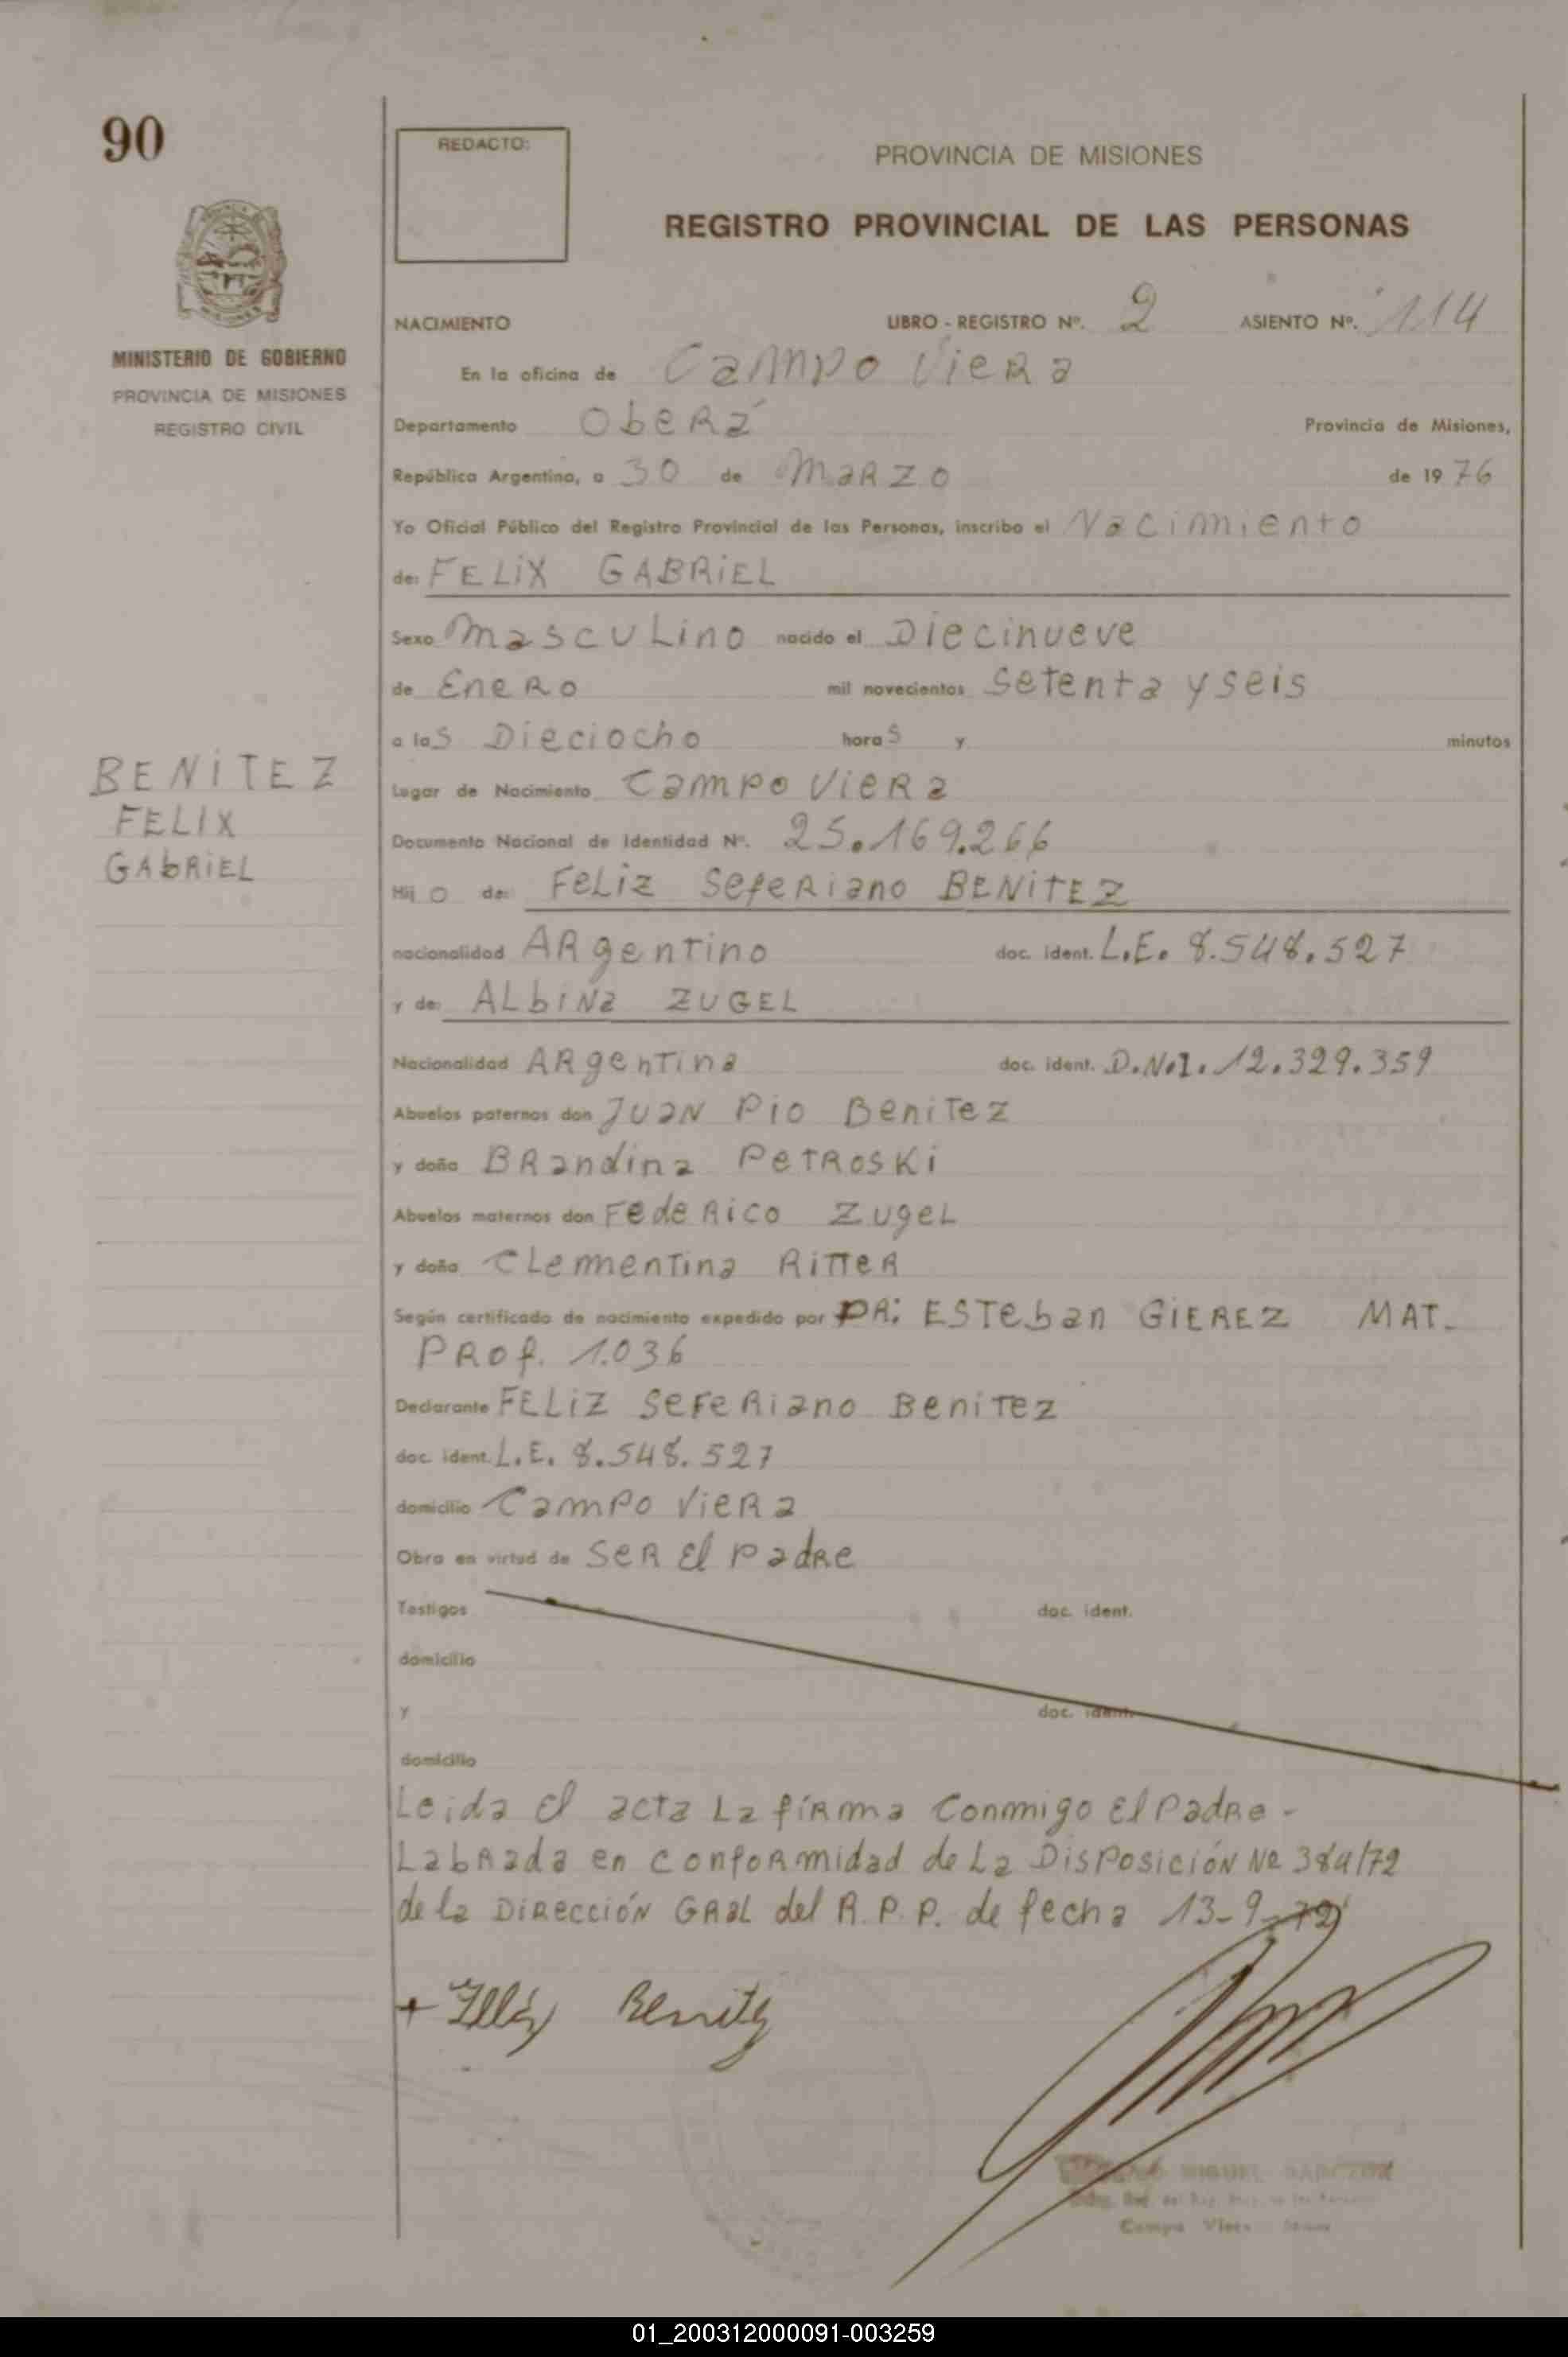 90
REDACTO:
PROVINCIA DE MISIONES
REGISTRO PROVINCIAL DE LAS PERSONAS
MINISTERIO DE GOBIERNO
PROVINCIA DE MISIONES
REGISTRO CIVIL
NACIMIENTO LIBRO - REGISTRO Nº. 2 ASIENTO Nº. 114
En la oficina de Campo Viera
Departamento Oberá Provincia de Misiones,
República Argentina, a 30 de Marzo de 1976
Yo Oficial Público del Registro Provincial de las Personas, inscribo el Nacimiento
de: FELIX GABRIEL
Sexo Masculino nacido el Diecinueve
de Enero mil novecientos Setenta y seis
a las Dieciocho horas y minutos
BENITEZ
FELIX
GABRIEL
Lugar de Nacimiento Campo Viera
Documento Nacional de Identidad Nº. 25.169.266
Hijo de: Feliz Seferiano BENITEZ
nacionalidad Argentino doc. ident. L.E. 8.548.527
y de: ALbiNa ZUGEL
Nacionalidad Argentina doc. ident. D.N.I. 12.329.359
Abuelos paternos don Juan Pio Benitez
y doña Brandina Petroski
Abuelos maternos don Federico Zugel
y doña Clementina Ritter
Según certificado de nacimiento expedido por DR: Esteban GIEREZ MAT.
PROf. 1.036
Declarante FELIZ Seferiano Benitez
doc. ident. L.E. 8.548.527
domicilio Campo Viera
Obra en virtud de Ser El Padre
Testigos doc. ident.
domicilio
y doc. ident.
domicilio
Leida El acta La firma Conmigo El Padre -
Labrada en conformidad de La Disposición Nº 384/72
de la Dirección GRAL del R.P.P. de fecha 13-9-72
+ Benitez
MIGUEL
Campo Viera
01_200312000091-003259